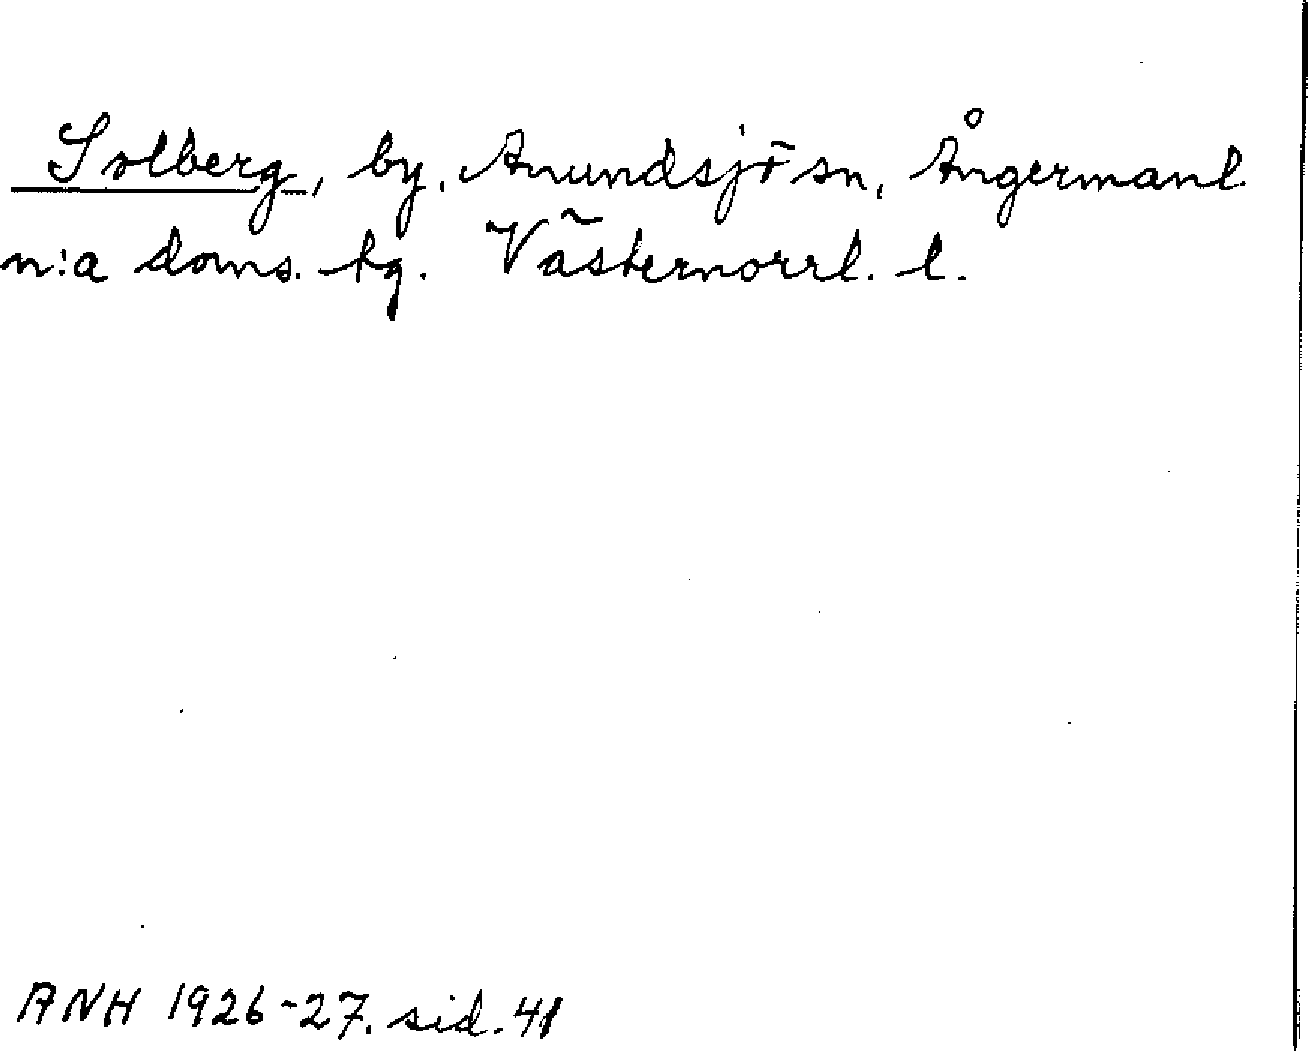 Solberg, by, Anundsjö sn, Ångermanl.
n:a doms. tg. Västernorrl. l.
ANH 1926-27. sid. 41